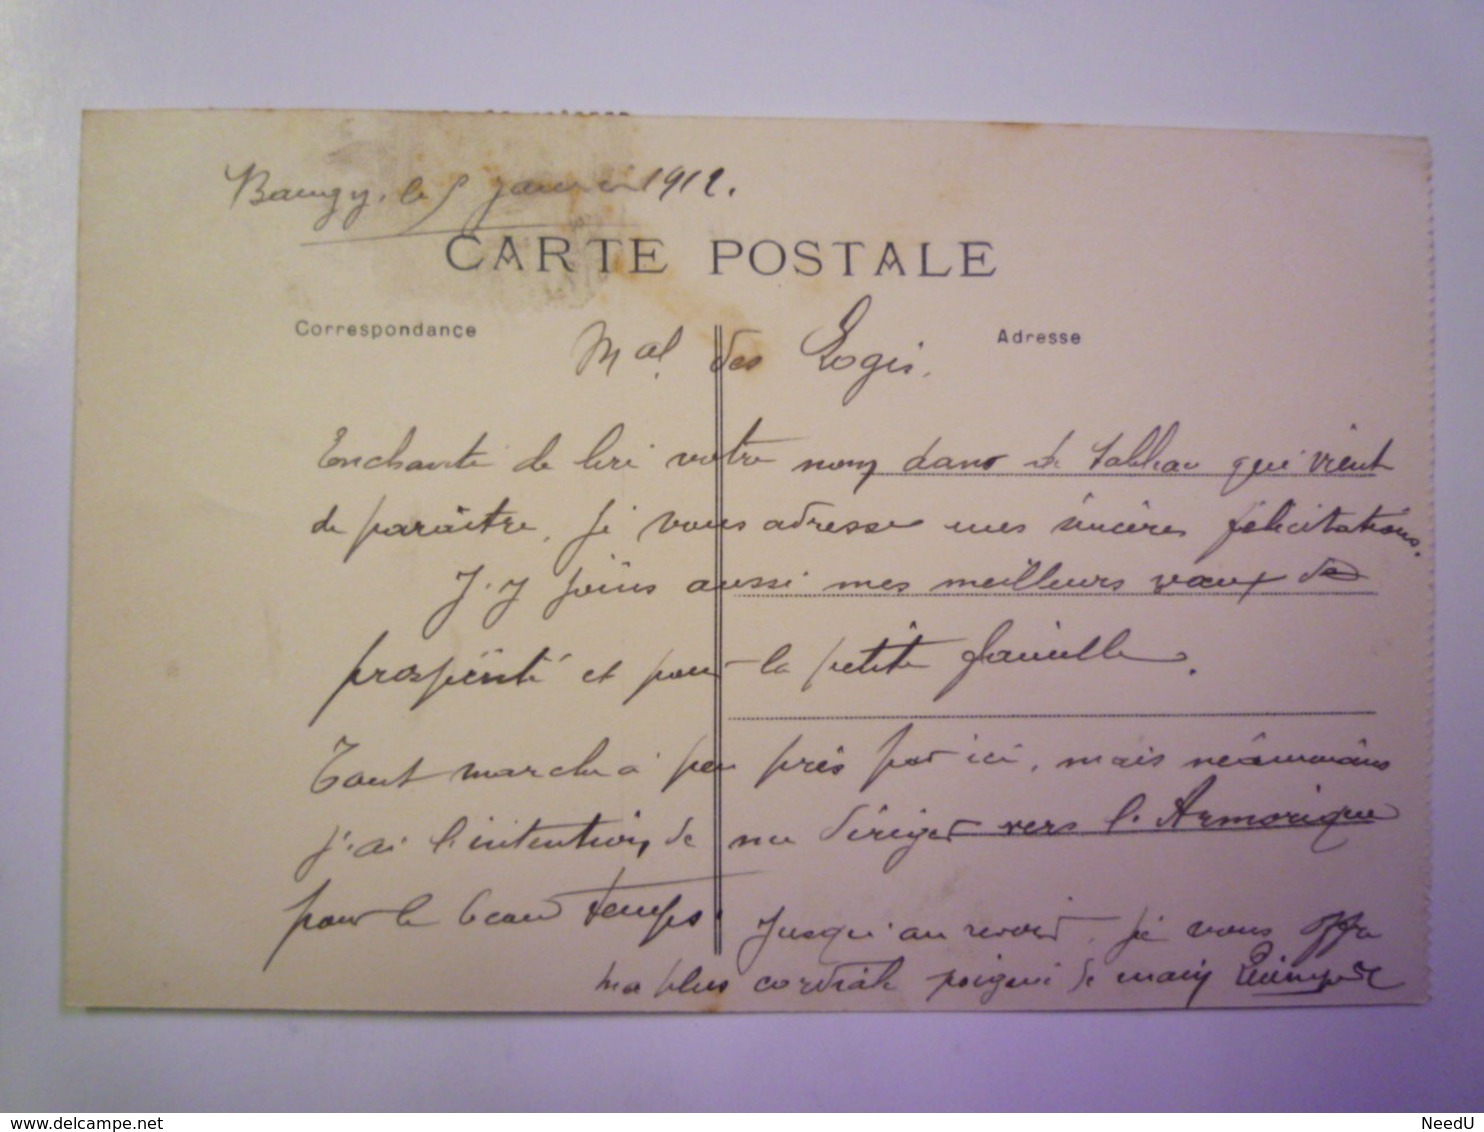 Baugy, le 5 janvier 1912.
CARTE POSTALE
Correspondance
Adresse
Mal des Logis,
Enchanté de lire votre nom dans le tableau qui vient
de paraître, je vous adresse mes sincères félicitations.
J'y joins aussi mes meilleurs vœux de
prospérité et pour la petite famille.
Tout marche à peu près par ici, mais néanmoins
j'ai l'intention de me diriger vers l'Armorique
pour le beau temps.
Jusqu'au revoir, je vous offre
ma plus cordiale poignée de main
www.delcampe.net
NeedU